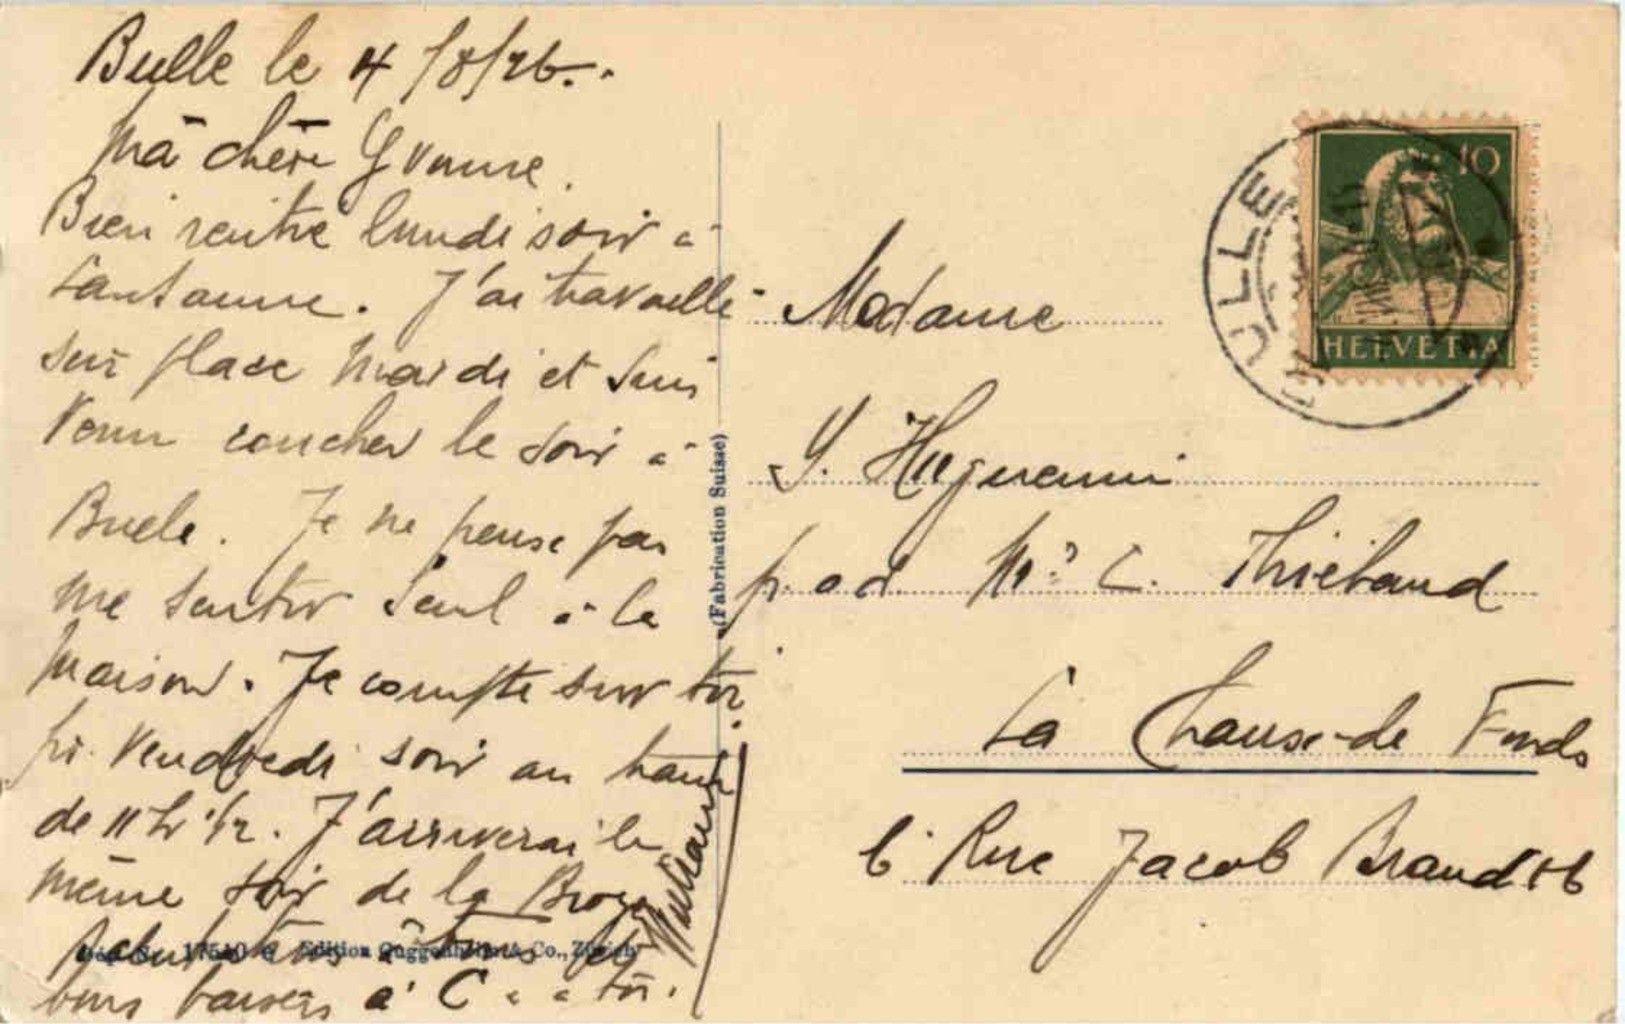 Bulle le 4/8/26.
Ma chère Yvonne.
Bien rentré lundi soir à
Lausanne. J'ai travaillé
sur place mardi et suis
venu coucher le soir à
Bulle. Je ne pense pas
me sentir seul à la
maison. Je compte sur toi
pr. vendredi soir au train
de 11 h 1/2. J'arriverai le
même soir de la Broye
Salutations à tous et
bons baisers à C. et à toi.
(Fabrication Suisse)
17540 Edition Guggenheim & Co., Zürich
BULLE
10
HELVETIA
Madame
Y. Huguenin
p. ad. Mr C. Thiébaud
La Chaux-de Fonds
6 Rue Jacob Brandt 6